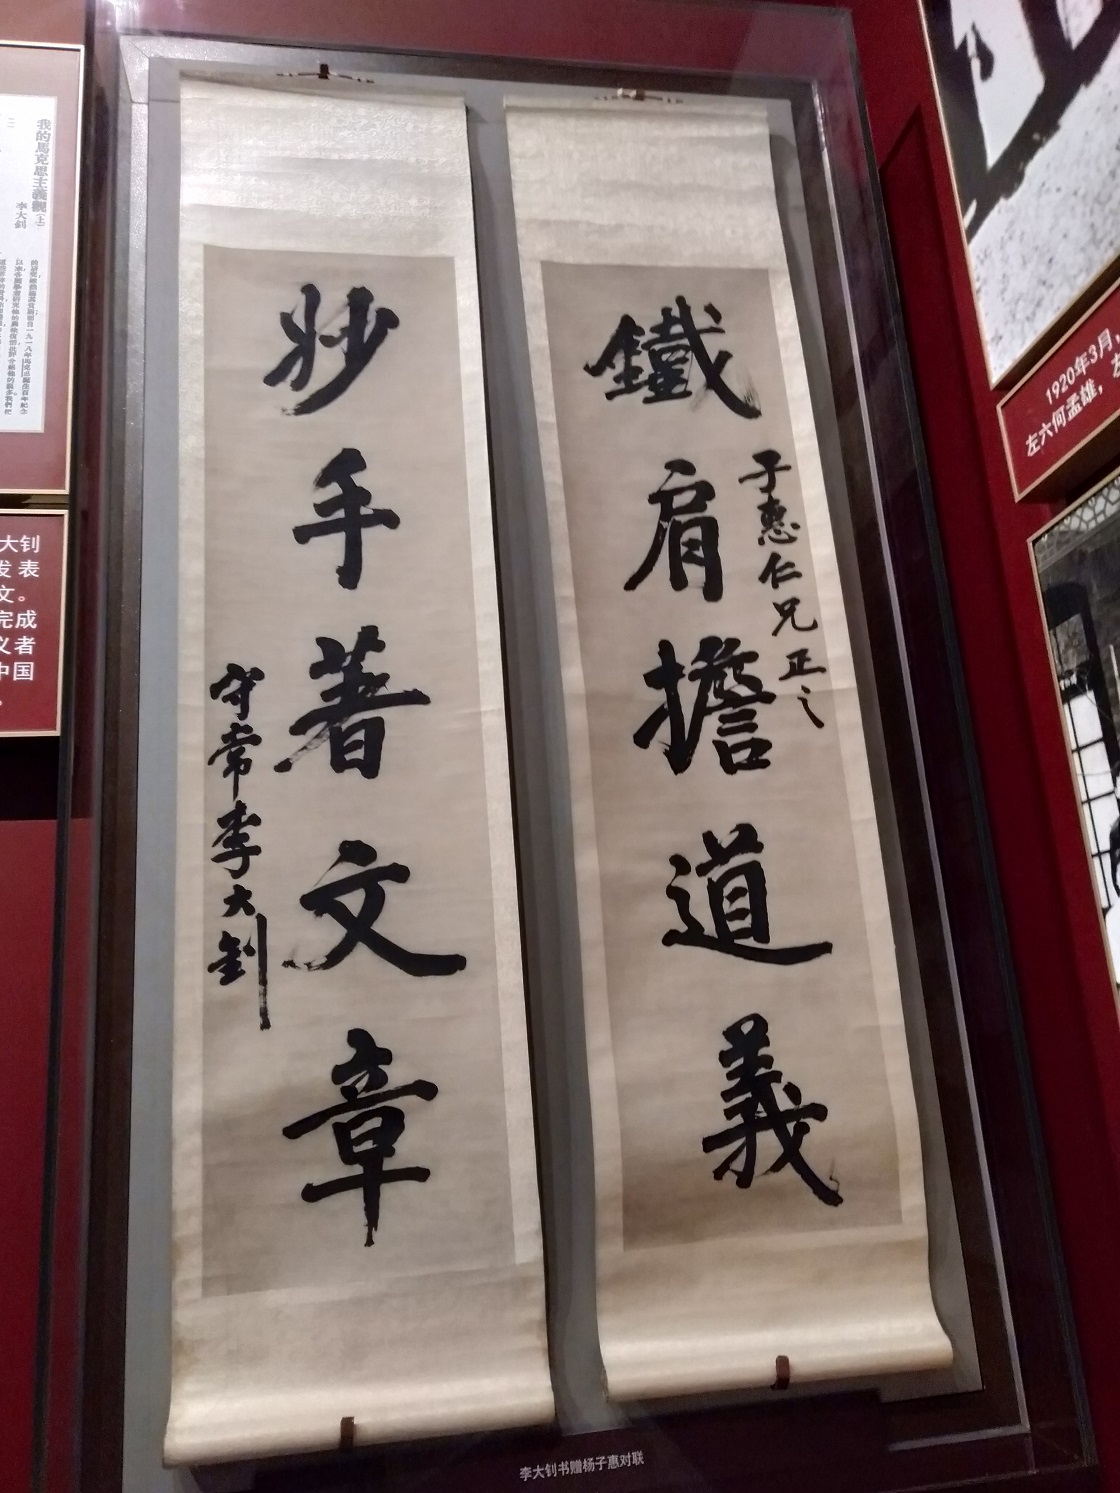 鐵肩擔道義
子惠仁兄正之
妙手著文章
守常李大釗
李大钊书赠杨子惠对联
我的馬克思主義觀(上)
李大釗
大钊
发表
文。
完成
义者
中国
1920年3月,
左六何孟雄,左